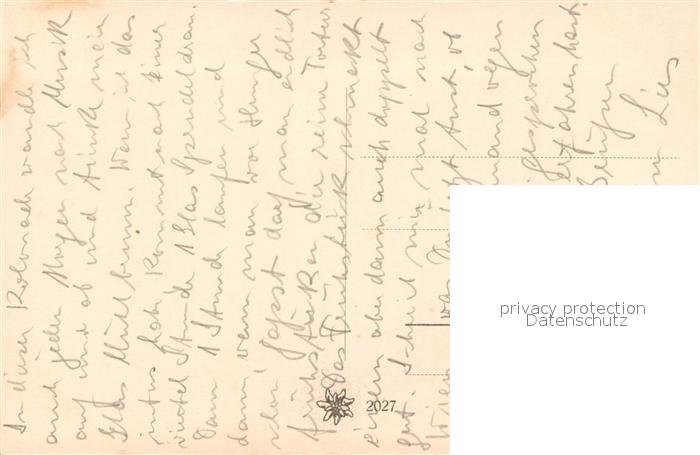 In dieser Kolonade wandle ich
auch jeden Morgen nach Musik
auf und ab und trinke mein
Glas Mühlbrunn. Wenn ich das
intus habe kommt nach einer
viertel Stunde 1 Glas Sprudel dran.
Dann 1 Stunde laufen und
dann, wenn man vor Hunger
schon japst darf man endlich
frühstücken die reine Tortur
Das Frühstück schmeckt
einem aber dann auch doppelt
gut. Schreib mir mal nach
Wien was Du
mand wegen
gesprochen
erfahren hast.
2027
privacy protection
Datenschutz